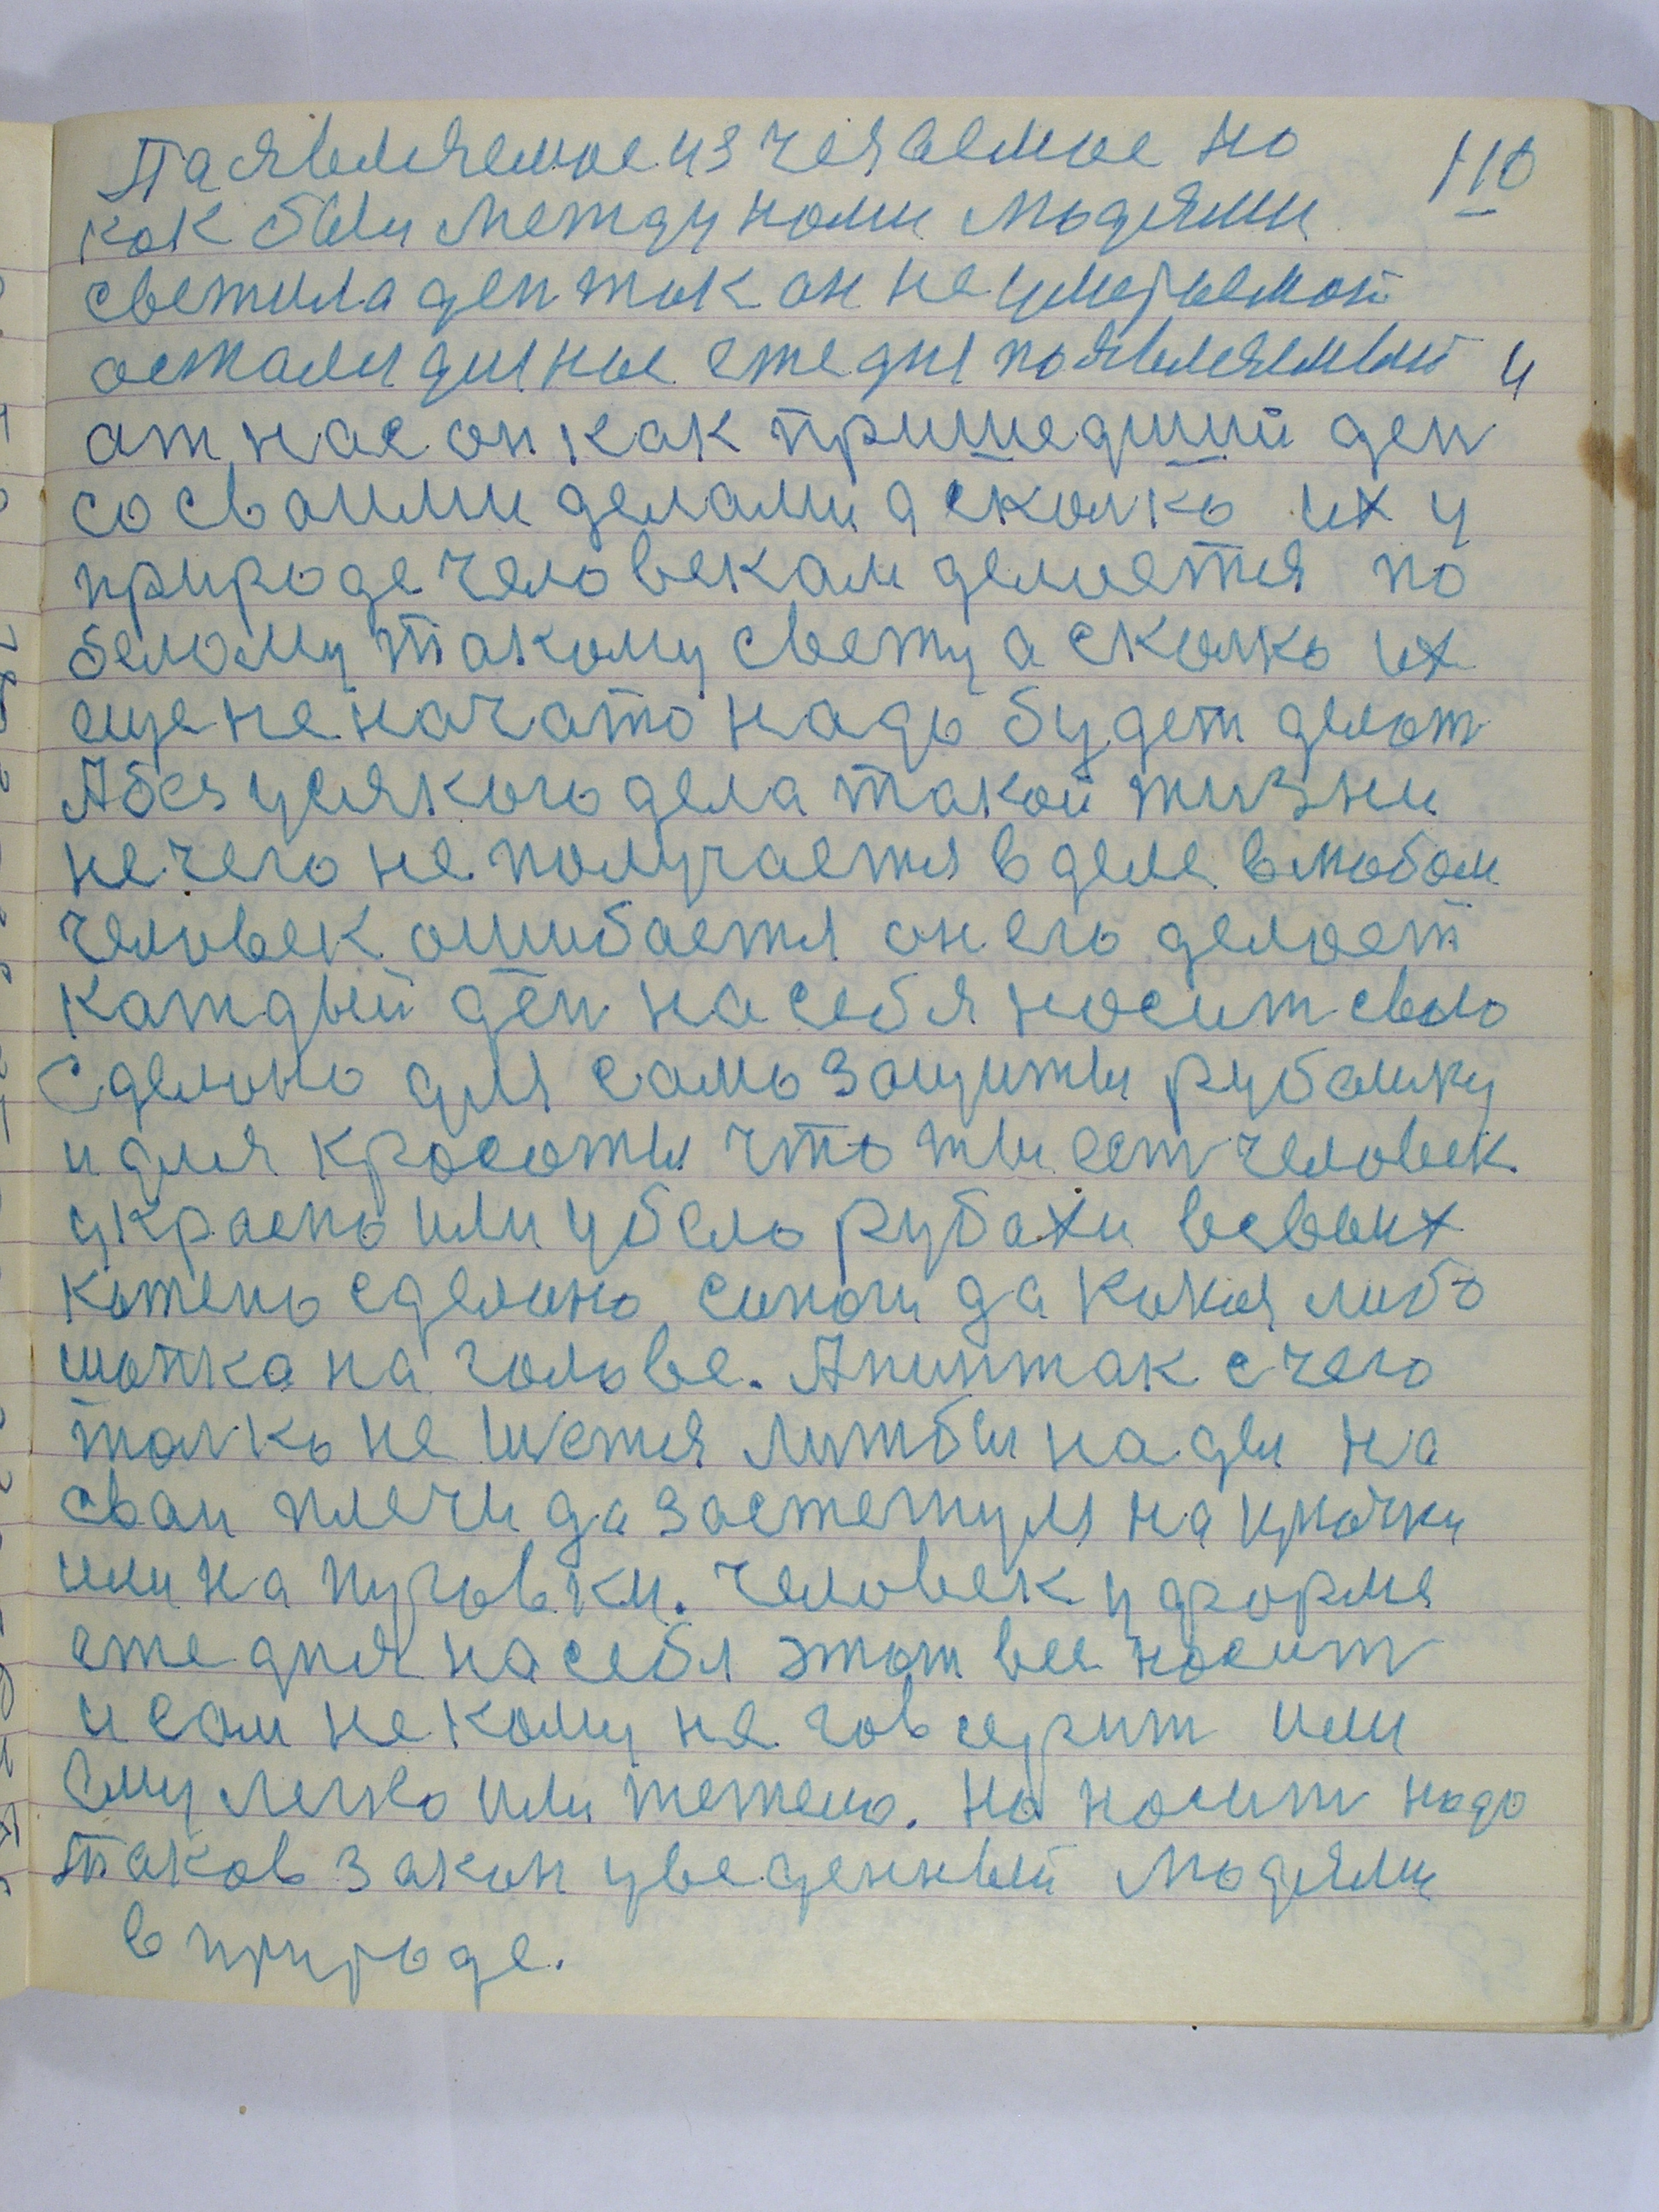 Паявляемое изчезаемое но 110
как был между нами людями
светила ден так он неумераемай
остался для нас ежедня появляемый и
ат нас он как пришедший ден
со сваими делами а сколко их у
природе человекам делается по
белому такому свету а сколко их
еще неначато надо будет делат
А без усякого дела такой жизни
нечего не получается в деле в любом
человек ошибается он его делает
каждый ден на себя носит сваю
сделано для само защиты рубашку
и для красоты что ты ест человек
у красно или у бело рубахи в сваих
кожено сделано сапоги да какая либо
шапка на голове. А пинжак с чего
толко не шется лишбы надел на
сваи плечи да застегнулся на крючки
или на пуговки. Человек у форме
ежедня на себя этот все носит
и сам не кому не говурит или
ему легко или тежело. но носит надо
таков закон уведенный людями
в природе.